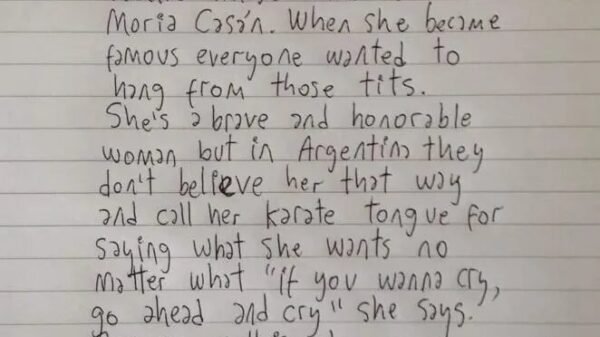 Moria Casán. When she became
famous everyone wanted to
hang from those tits.
She's a brave and honorable
woman but in Argentina they
don't believe her that way
and call her karate tongue for
saying what she wants no
matter what "if you wanna cry,
go ahead and cry" she says.